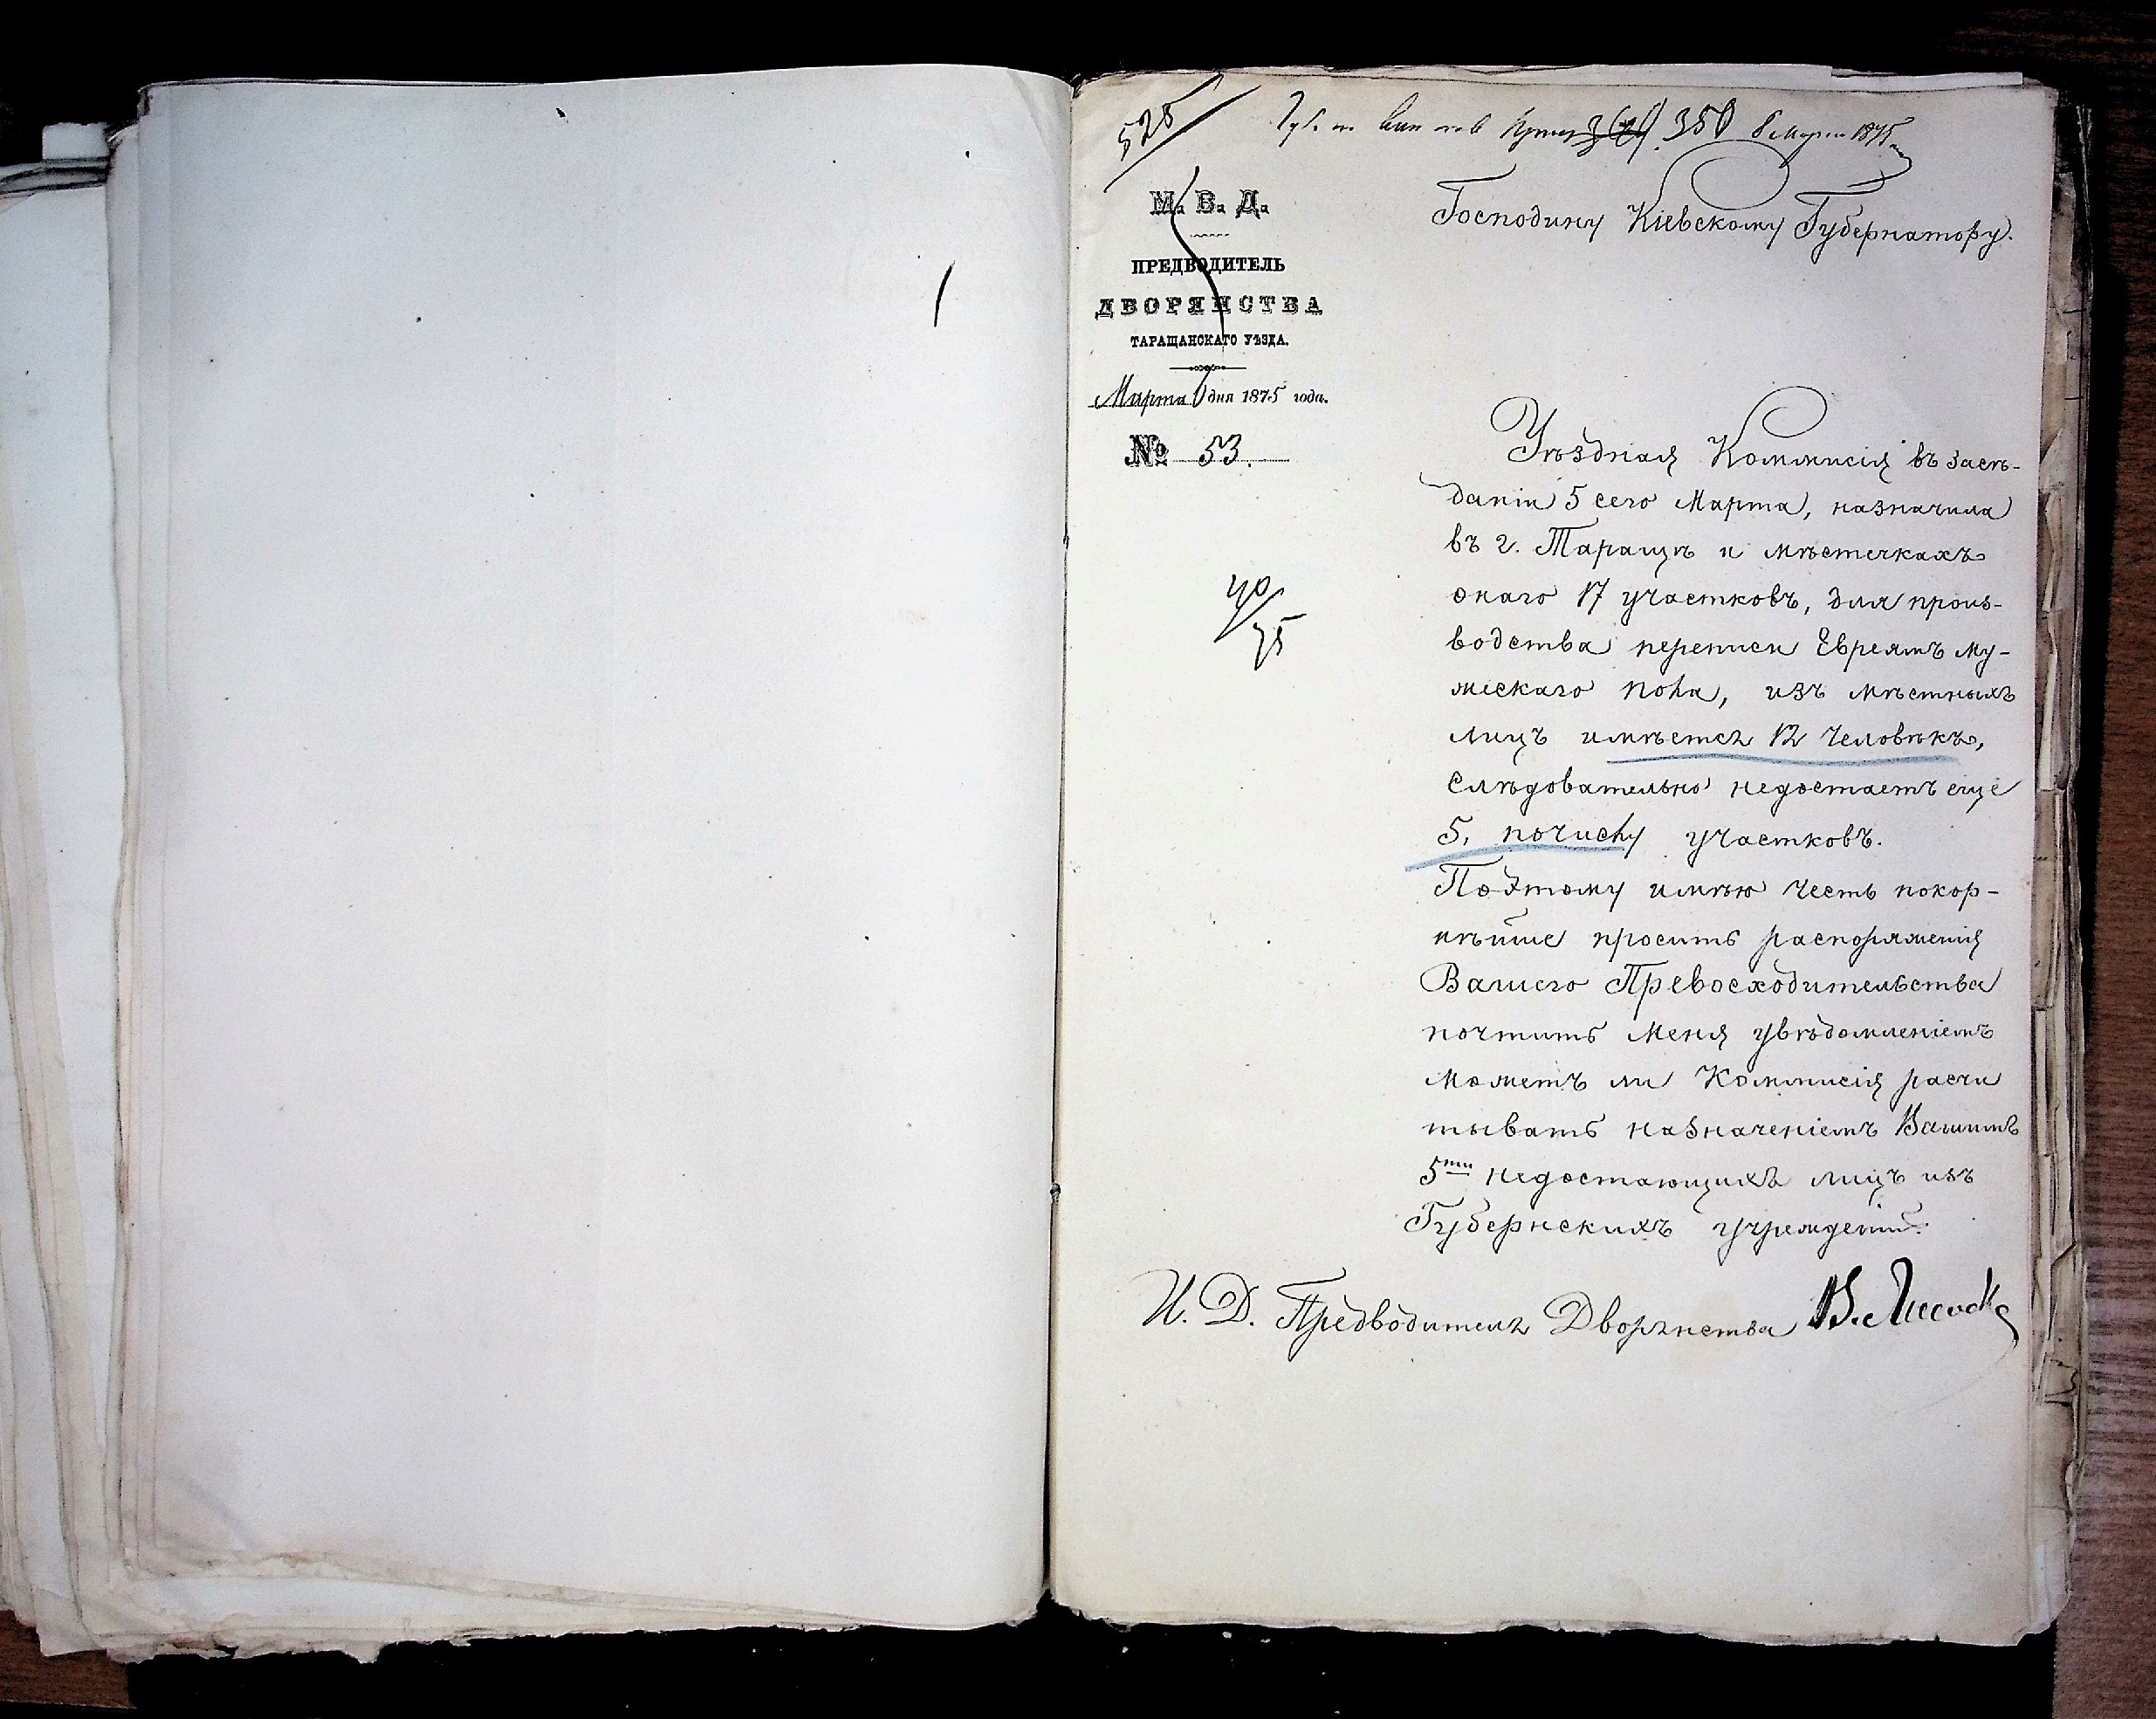 525
350 8 Марта 1875
М. В. Д.
ПРЕДВОДИТЕЛЬ
ДВОРЯНСТВА
ТАРАЩАНСКАГО УѢЗДА.
Марта 6 дня 1875 года.
№ 53.
40/75
Господину Кіевскому Губернатору.
Уѣздная Коммисія въ засѣ-
даніи 5 сего Марта, назначила
въ г. Таращѣ и мѣстечкахъ
онаго 17 участковъ, для произ-
водства переписи Евреямъ му-
жескаго пола, изъ мѣстныхъ
лицъ имѣется 12 человѣкъ,
слѣдовательно недостаетъ еще
5, почислу участковъ.
Поэтому имѣю честь покор-
нѣйше просить распоряженія
Вашего Превосходительства
почтить меня увѣдомленіемъ
можетъ ли Коммисія расчи
тывать назначеніемъ Вашимъ
5ти недостающихъ лицъ изъ
Губернскихъ учрежденій.
И. Д. Предводителя Дворянства В.